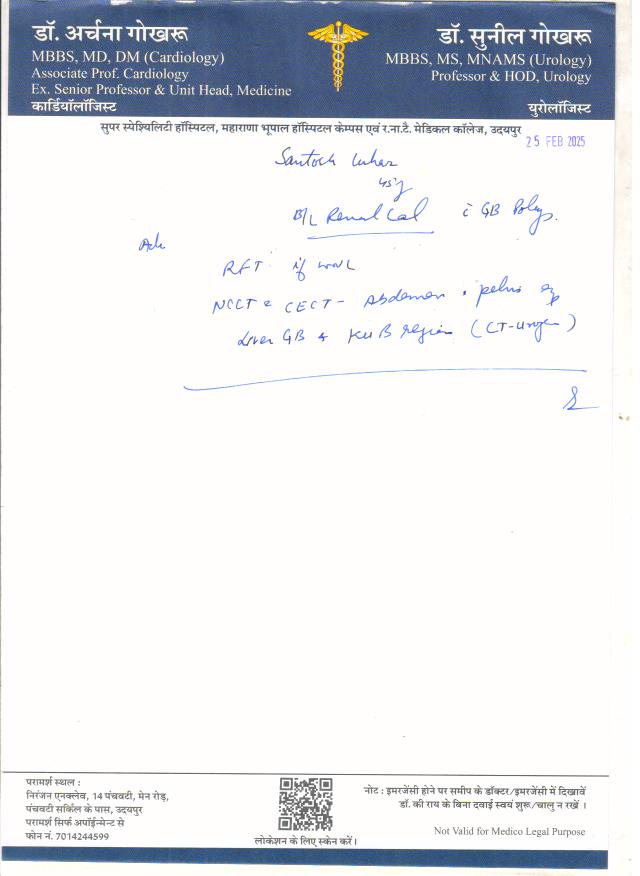 डॉ. अर्चना गोखरू
MBBS, MD, DM (Cardiology)
Associate Prof. Cardiology
Ex. Senior Professor & Unit Head, Medicine
कार्डियॉलॉजिस्ट
डॉ. सुनील गोखरू
MBBS, MS, MNAMS (Urology)
Professor & HOD, Urology
युरोलॉजिस्ट
सुपर स्पेश्यिलिटी हॉस्पिटल, महाराणा भूपाल हॉस्पिटल केम्पस एवं र.ना.टै. मेडिकल कॉलेज, उदयपुर
25 FEB 2025
Santosh
45y
B/L Renal Cal c GB Polyp.
Adv
RFT if WNL
NCCT & CECT - Abdomen & pelvis esp
Liver GB & KUB region (CT-Urogram)
परामर्श स्थल :
निरंजन एनक्लेव, 14 पंचवटी, मेन रोड़,
पंचवटी सर्किल के पास, उदयपुर
परामर्श सिर्फ अपॉईन्मेन्ट से
फोन नं. 7014244599
लोकेशन के लिए स्केन करें।
नोट : इमरजेंसी होने पर समीप के डॉक्टर/इमरजेंसी में दिखावें
डॉ. की राय के बिना दवाई स्वयं शुरू/चालु न रखें ।
Not Valid for Medico Legal Purpose